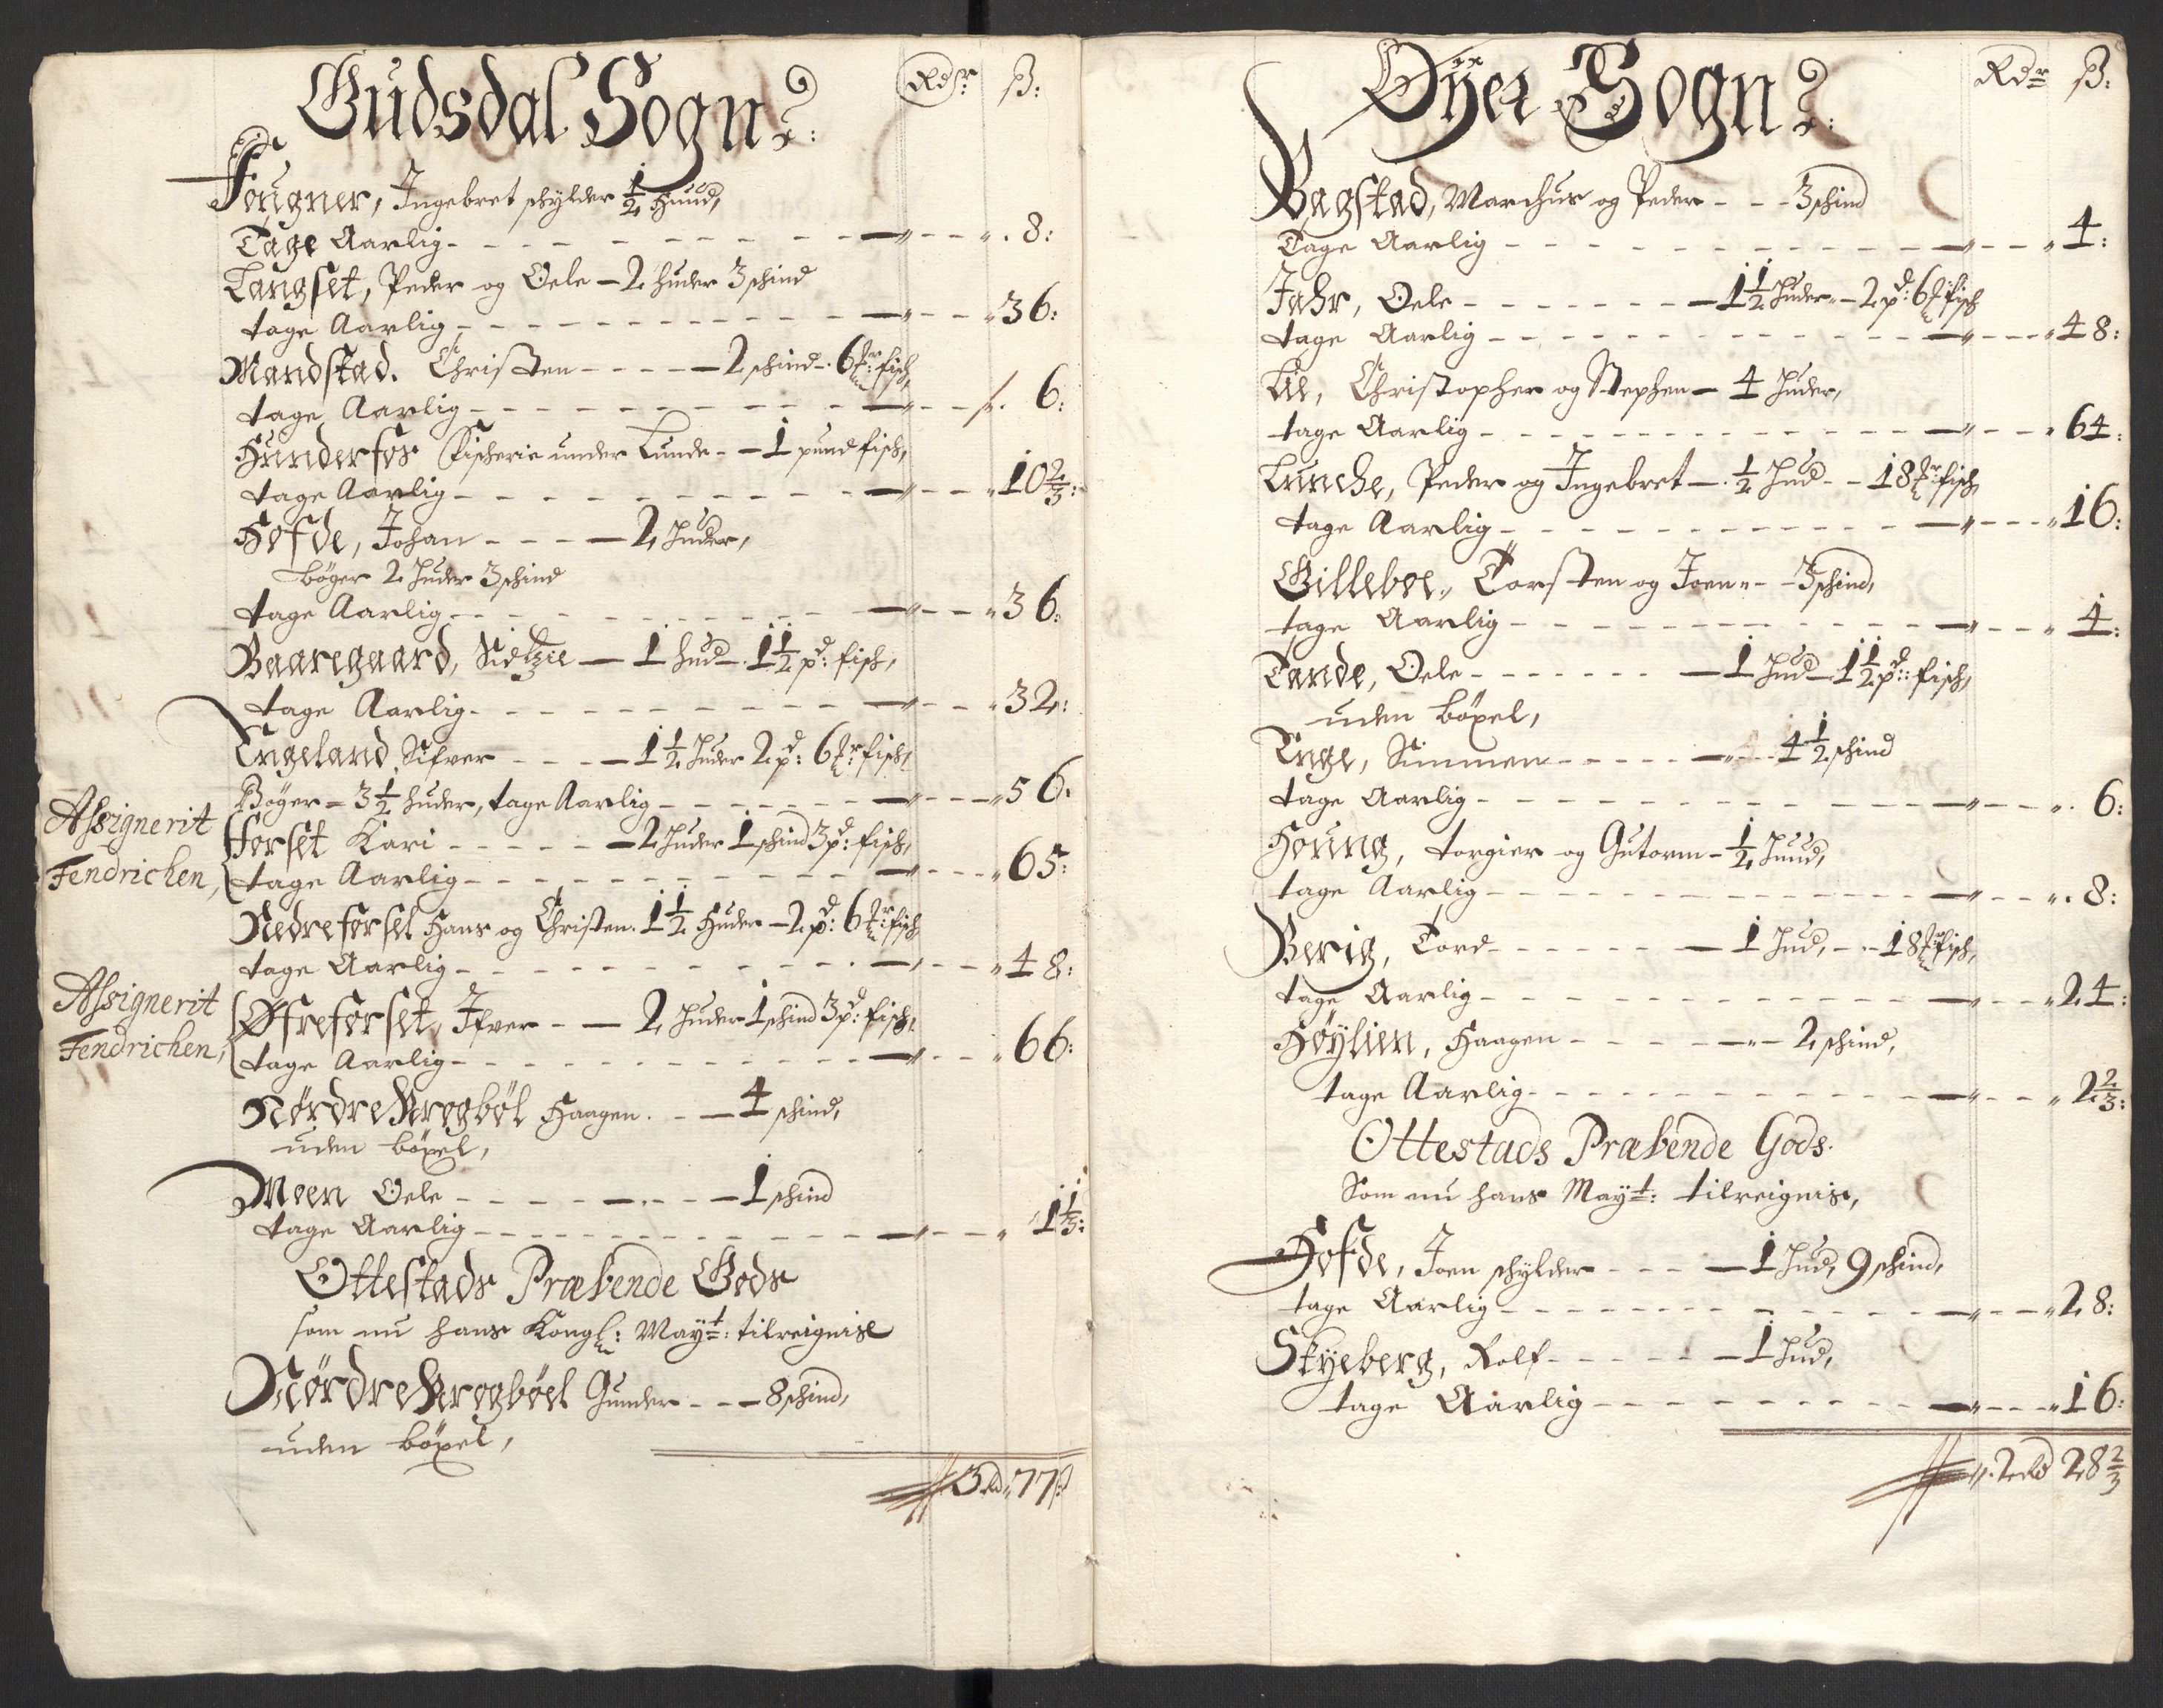 Gudsdal Sogn:
Rdr: ß:
Fougner, Ingebret schylder 1/2 Huud,
Tage Aarlig - - - 8:
Langset, Peder og Oele - 2 huder 3 schind
tage Aarlig - - - 36:
Mandstad. Christen - - - 2 schind - 6 mr: fisch,
tage Aarlig - - - 6:
Hunderfos Fischerie under Lunde - - 1 pund fisch,
tage Aarlig - - - 10 2/3:
Hofde, Johan - - - 2 Huder,
böger 2 Huder 3 schind
tage Aarlig - - - 36:
Baaregaard, - 1 hud - 1 1/2 pd: fisch,
tage Aarlig - - - 32:
Engeland, Sifver - - - 1 1/2 Huder 2 pd: 6 mr: fisch,
Böger - 3 1/2 huder, tage Aarlig - - - 56.
Assignerit
Fendrichen,
Forset Kari - - - 2 Huder 1 schind 3 pd: fisch,
tage Aarlig - - - 65:
Nedreforset Hans og Christen. 1 1/2 Huder - 2 pd: 6 mr: fisch
tage Aarlig - - - 48:
Assignerit
Fendrichen,
Øfreforset, Ifver - - 2 Huder 1 schind 3 pd: fisch,
tage Aarlig - - - 66:
Nørdre Krogbøl Haagen. - - 4 schind,
uden böxel,
Moen Oele - - - 1 schind
tage Aarlig - - - 1 1/3:
Ottestads Præbende Gods
som nu hans Kongl: Mayt: tilreignise
Nørdre Krogbøel Gunder - - - 8 schind,
uden böxel,
3 Rd 77 ß
Øÿer Sogn:
Rdr ß:
Bagstad, Marchus og Peder - - - 3 schind
Tage Aarlig - - - 4:
Jahr, Oele - - - 1 1/2 Huder - 2 pd: 6 mr fisch
tage Aarlig - - - 48:
Lie, Christopher og Stephen - 4 Huder,
tage Aarlig - - - 64:
Lunche, Peder og Ingebret - 1/2 Hud - - 18 mr fisch,
tage Aarlig - - - 16:
Gilleboe, Torsten og Joen - - 3 schind,
tage Aarlig - - - 4:
Tande, Oele - - - 1 Hud - 1 1/2 pd: fisch,
uden böxel,
Enge, Simmen - - - 4 1/2 schind
tage Aarlig - - - 6:
Houng, torgier og Gutorm - 1/2 Huud,
tage Aarlig - - - 8:
Berig, Tord - - - 1 Hud, - - 18 mr fisch,
tage Aarlig - - - 24:
Høÿlien, Haagen - - - 2 schind,
tage Aarlig - - - 2 2/3:
Ottestads Præbende Gods.
Som nu hans Mayt: tilreignise,
Hofde, Joen schylder - - - 1 Hud, 9 schind,
tage Aarlig - - - 28:
Skÿeberg, Rolf - - - 1 Hud,
tage Aarlig - - - 16:
2 Rd 28 2/3